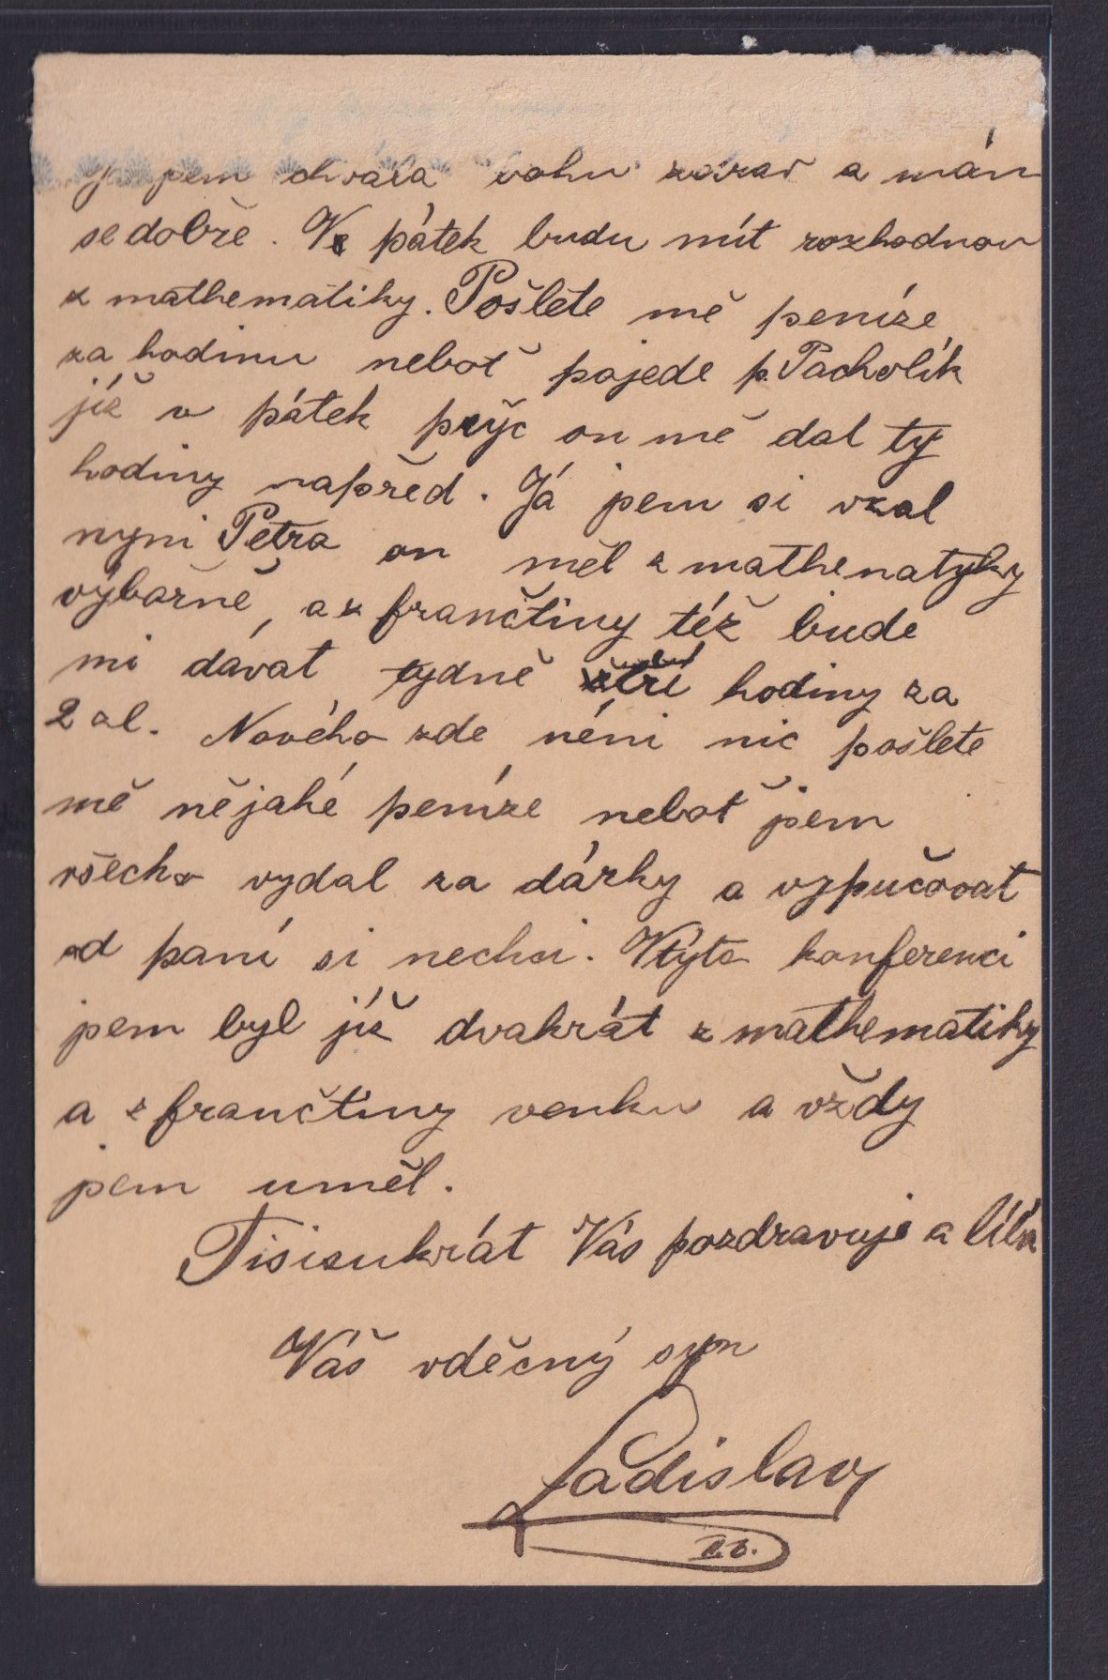 Já jsem chvála bohu zdráv a mám
se dobře. V pátek budu mít rozhodnou
z mathematiky. Pošlete mě peníze
za hodinu neboť pojede p. Pacholík
již v pátek pryč on mě dal ty
hodiny napřed. Já jsem si vzal
nyni Petra on měl z mathematyky
výborně, a z frančtiny též bude
mi dávat tydně tři hodiny za
2 zl. Nového zde néni nic pošlete
mě nějaké peníze neboť jsem
všecko vydal za dárky a vypučovat
od paní si nechci. V týto konferenci
jsem byl již dvakrát z mathematiky
a z frančtiny venku a vždy
jsem uměl.
Tisicukrát Vás pozdravuje a líbá
Váš vděčný syn
Ladislav